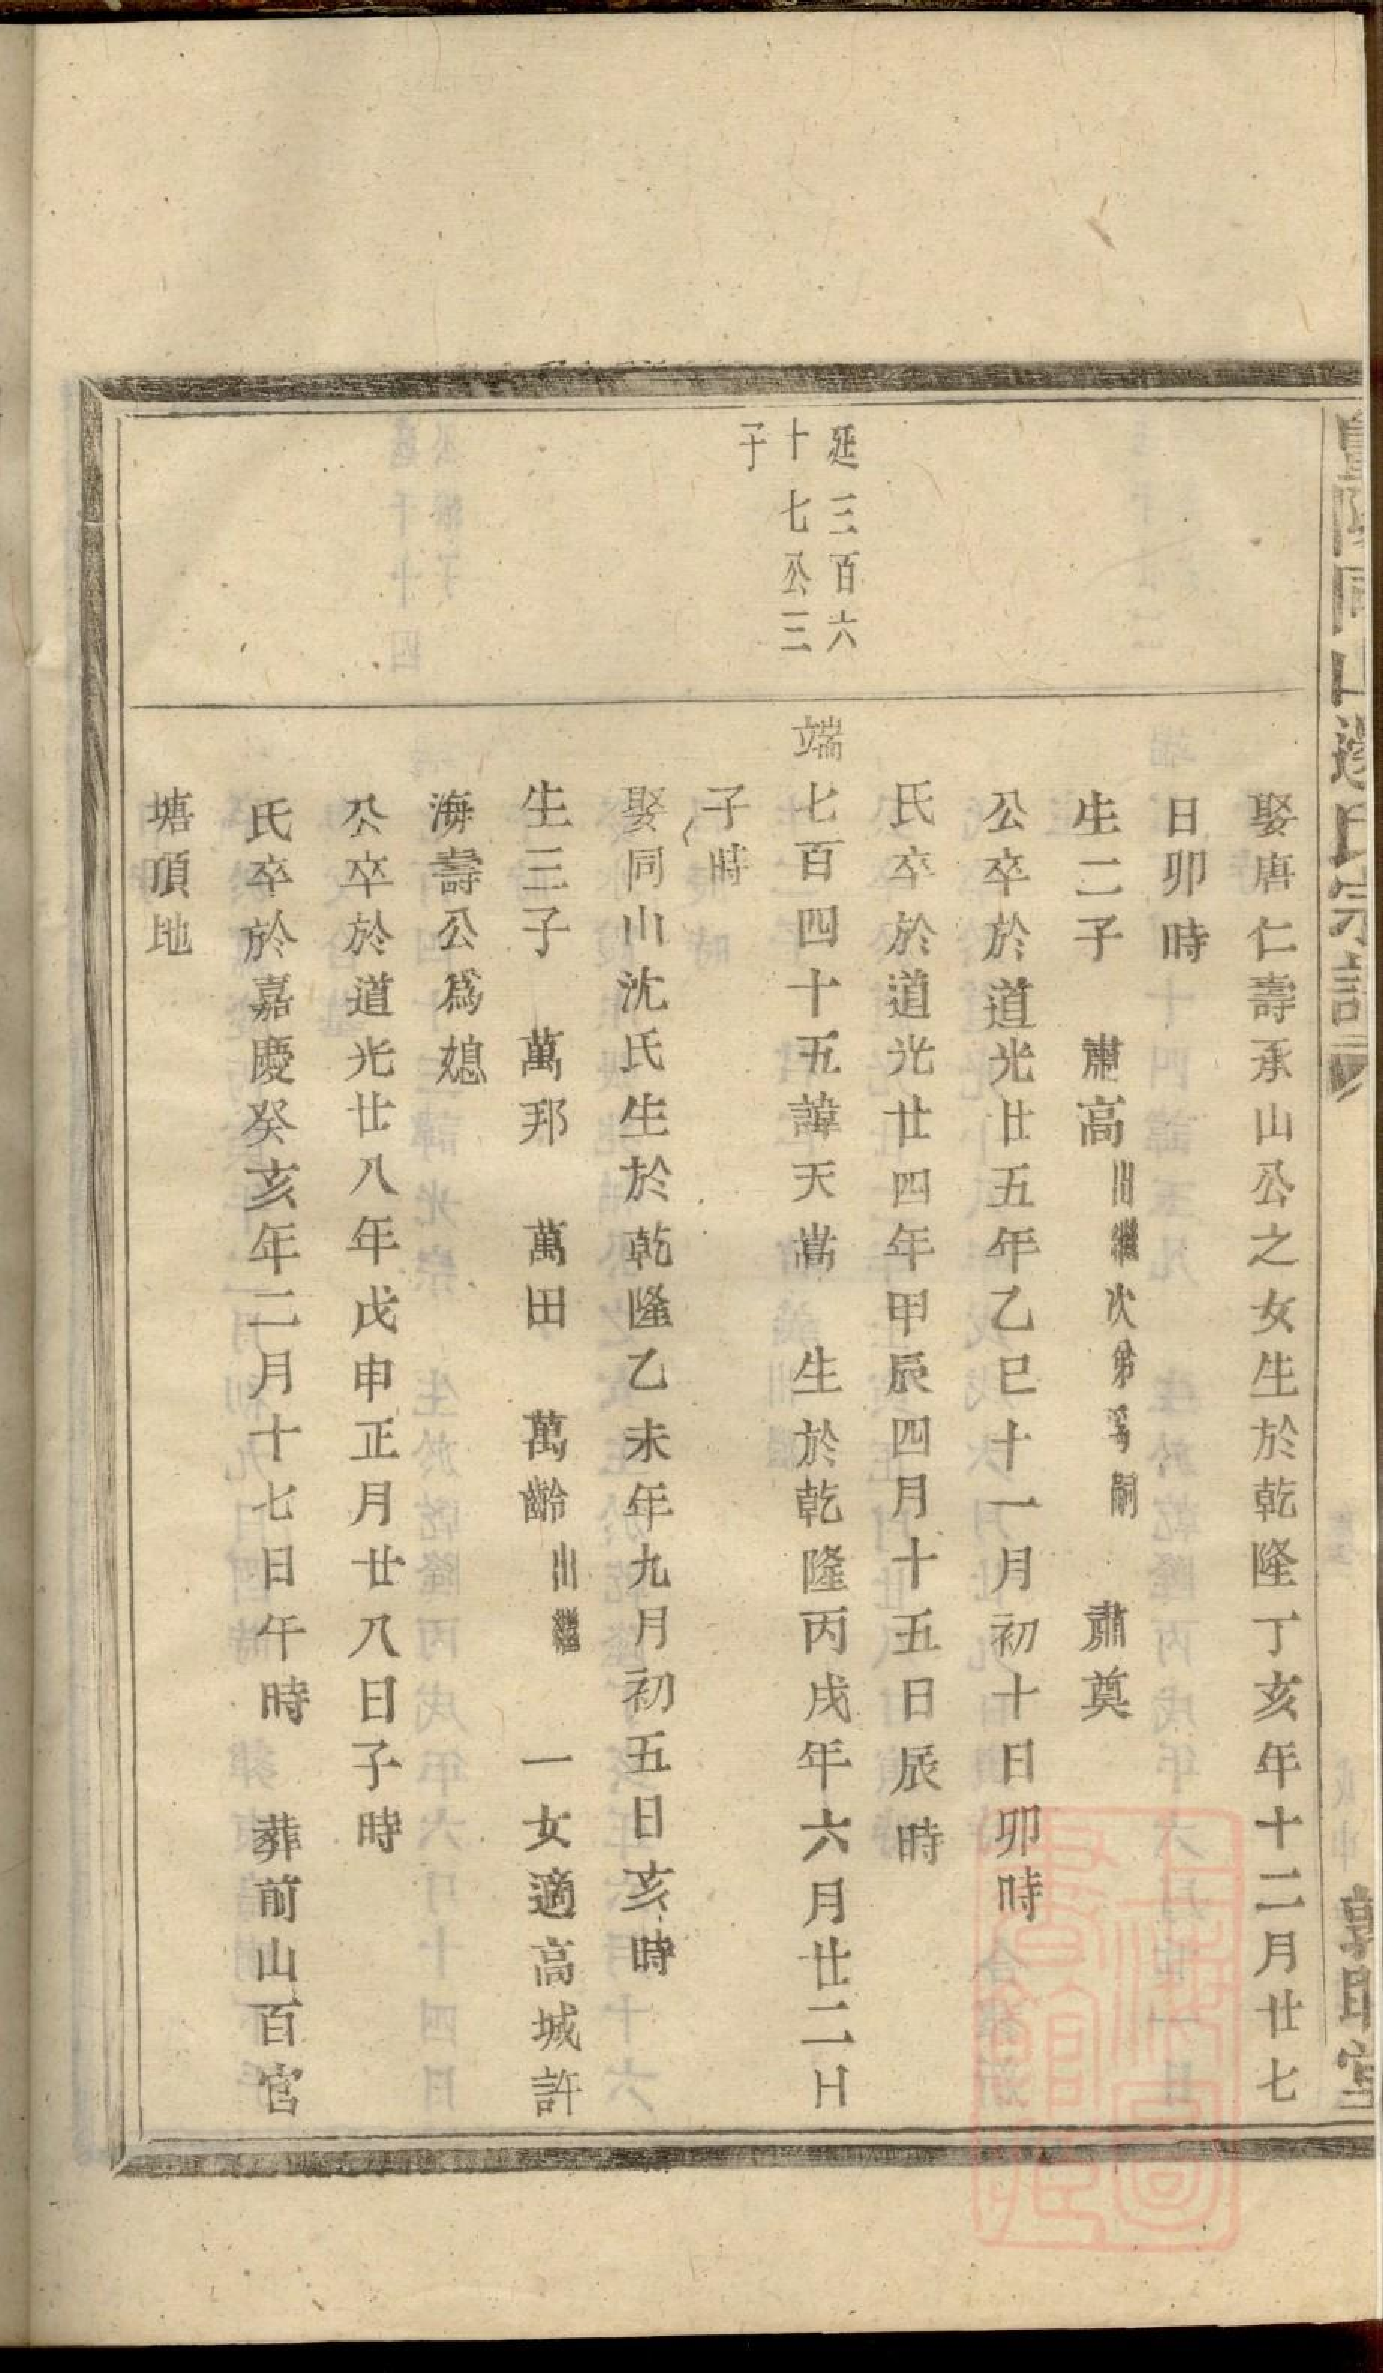 邊氏宗譜
敦睦堂
娶唐仁壽承山公之女生於乾隆丁亥年十二月廿七
日卯時
生二子 肅高出繼次弟爲嗣 肅奠
公卒於道光廿五年乙巳十一月初十日卯時
氏卒於道光廿四年甲辰四月十五日辰時
延三百六
十七公三
子
端七百四十五諱天嵩 生於乾隆丙戌年六月廿二日
子時
娶同山沈氏生於乾隆乙未年九月初五日亥時
生三子 萬邦 萬田 萬齡出繼 一女適高城許
海壽公爲媳
公卒於道光廿八年戊申正月廿八日子時
氏卒於嘉慶癸亥年二月十七日午時 葬前山百官
塘頂地